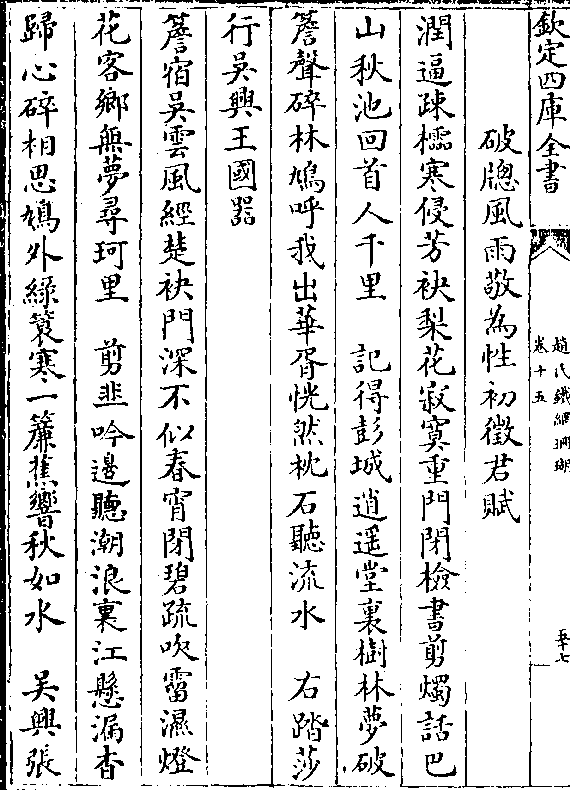 欽定四庫全書
趙氏鐵網珊瑚
卷十五
五十七
破牕風雨敬為性初徵君賦
潤逼踈櫺寒侵芳袂梨花寂寞重門閉檢書剪燭話巴
山秋池回首人千里　記得彭城逍遥堂裏樹林夢破
簷聲碎林鳩呼我出華胥恍然枕石聽流水　右踏莎
行吳興王國器
簷宿吳雲風經楚袂門深不似春宵閉碧疏吹霤濕燈
花客鄉無夢尋珂里　剪韭吟邊聽潮浪裏江懸漏杳
歸心碎相思鳩外綠簑寒一簾蕉響秋如水　吳興張